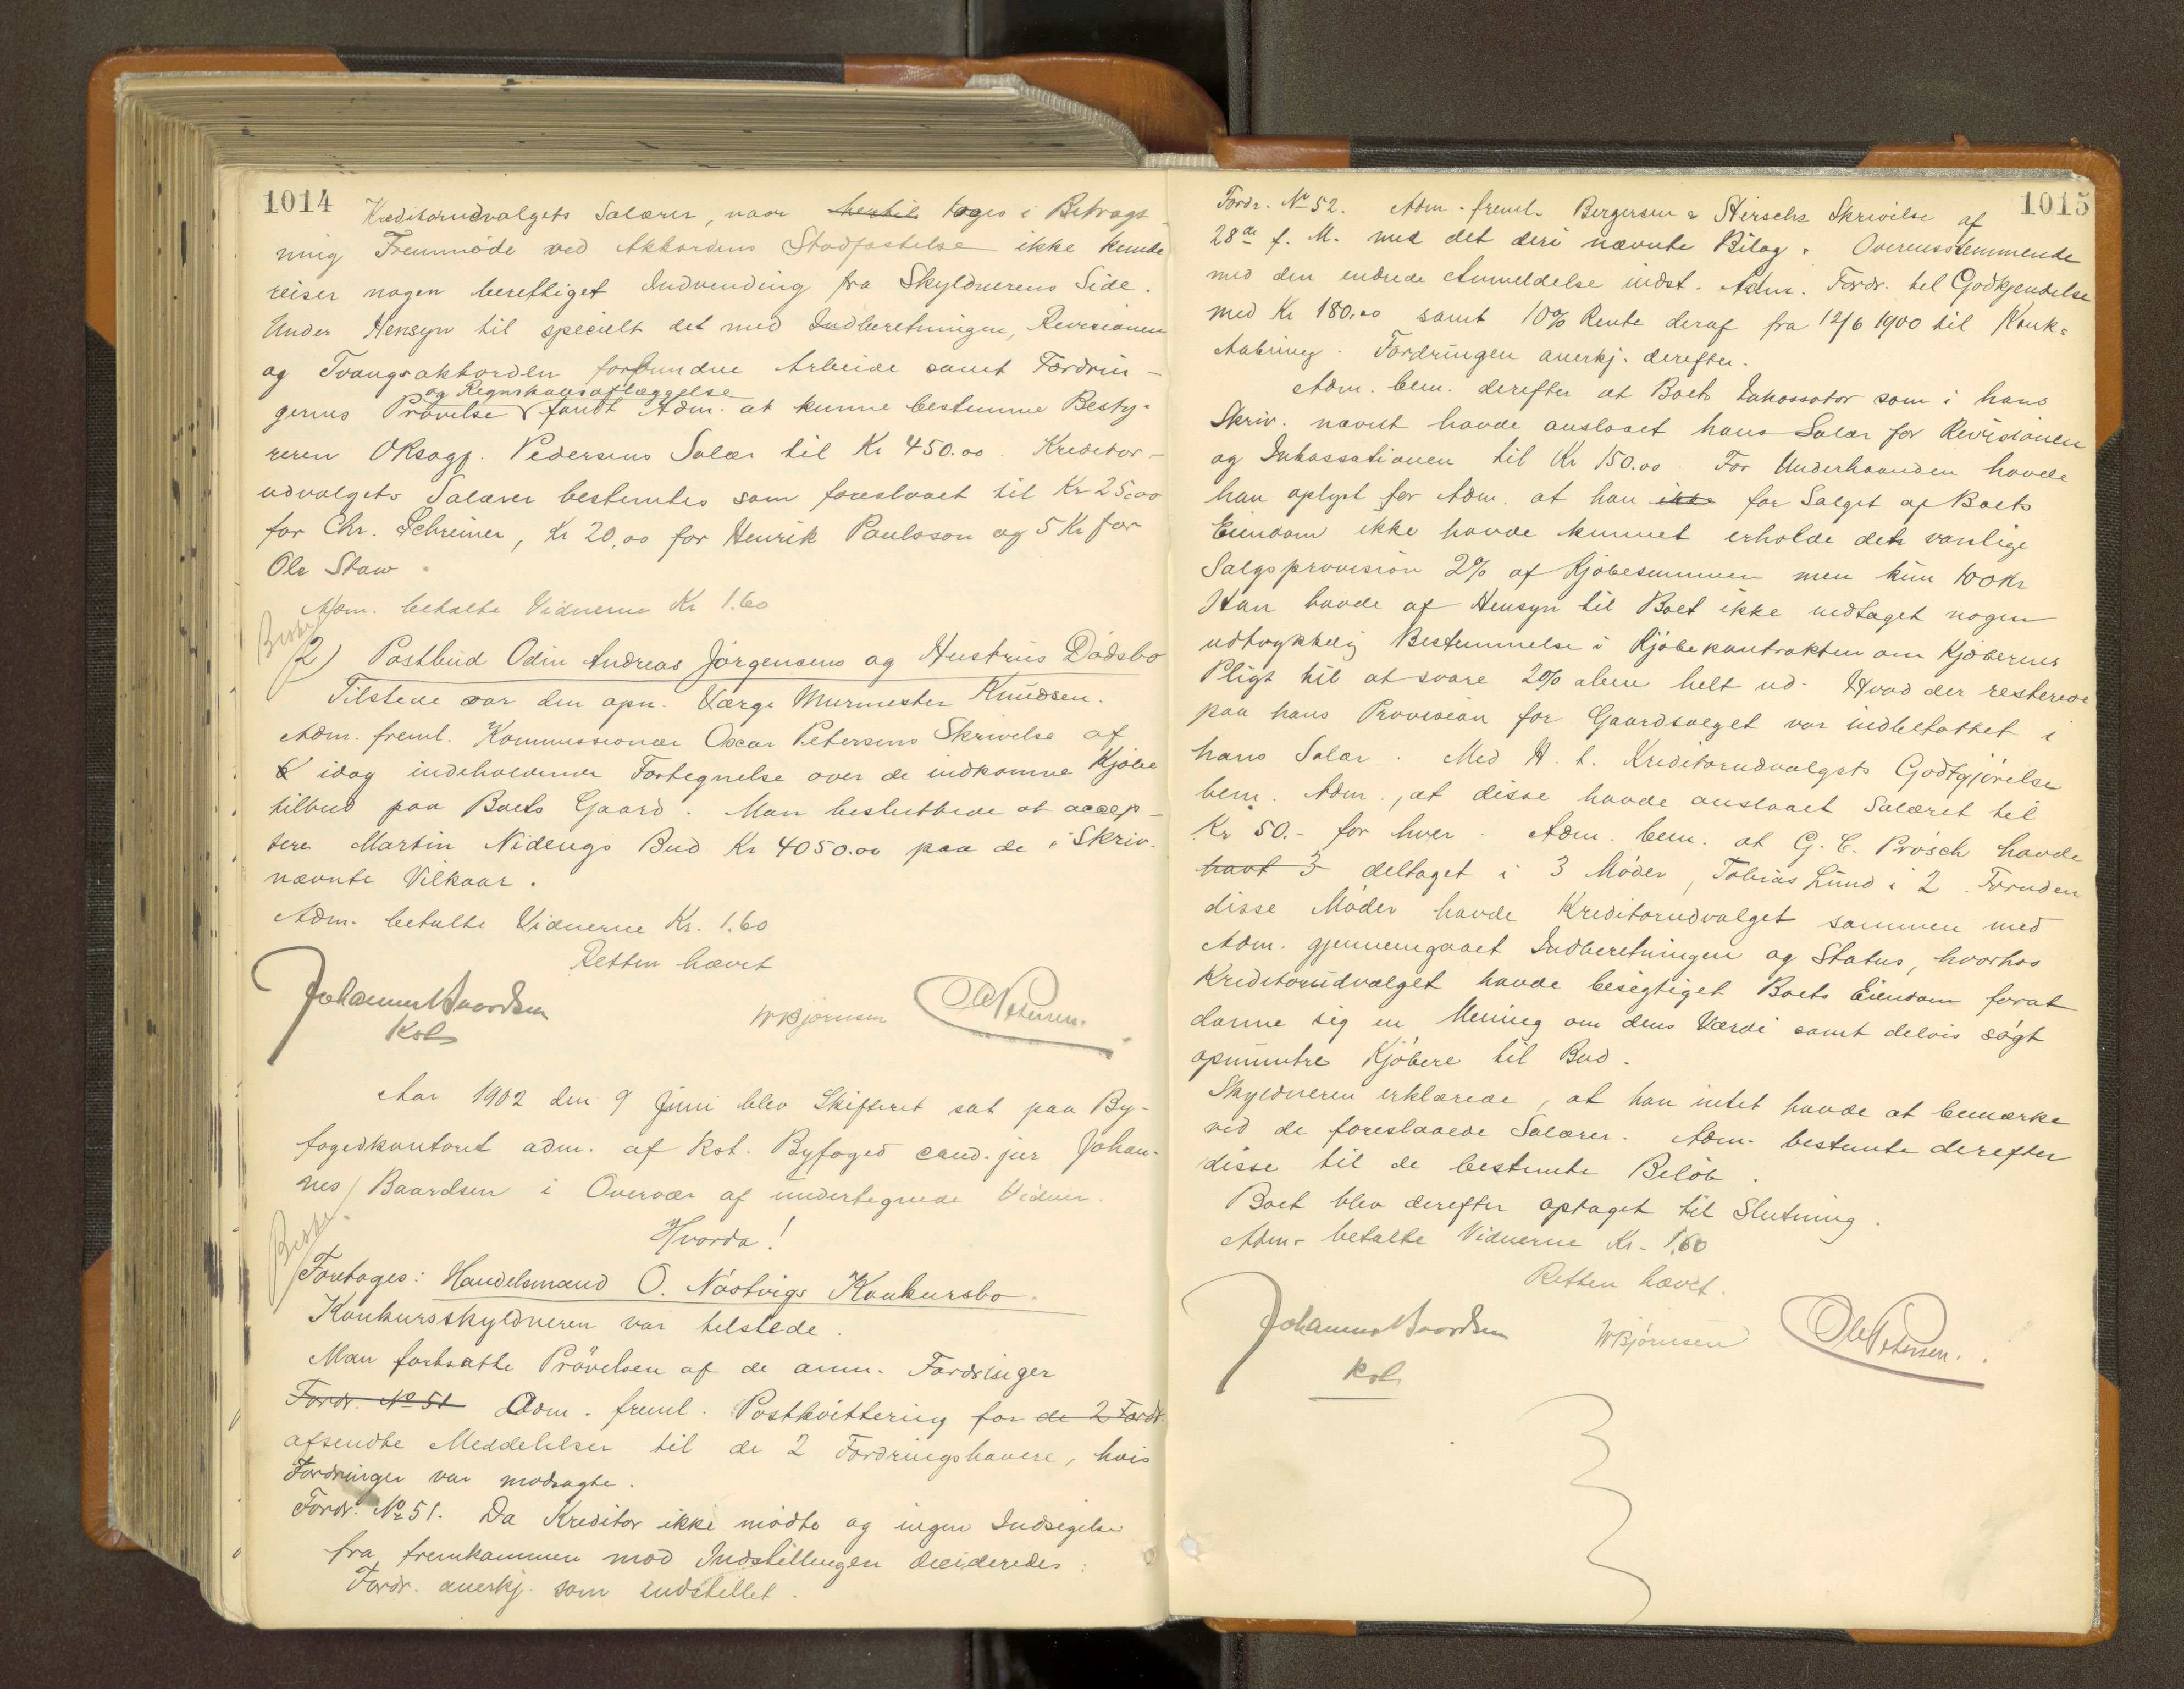 1014
Kreditorudvalgets Salærer, naar hertil toges i Betragt-
ning Fremmøde ved Akkordens Stadfæstelse ikke kunde
reises nogen berettiget Indvending fra Skyldnerens Side.
Under Hensyn til specielt det med Indberetningen, Revisionen
og Tvangsakkorden forbundne Arbeide samt Fordrin-
og Regnskabsaflæggelse
gernes Prøvelse fandt Adm. at kunne bestemme Besty-
reren ORsagf. Pedersens Salær til Kr 450.00. Kreditor-
udvalgets Salærer bestemtes som foreslaaet til Kr 25,00
for Chr. Schreiner, Kr 20,00 for Henrik Paulsson og 5 Kr for
Ole Staw.
Adm. betalte Vidnerne Kr 1.60
2) Postbud Odin Andreas Jørgensens og Hustrus Dødsbo
Tilstede var den opn. Værge Murmester Knudsen.
Adm. freml. Kommissionær Oscar Petersens Skrivelse af
idag indeholdende Fortegnelse over de indkomne Kjøbe
tilbud paa Boets Gaard. Man besluttede at accep-
tere Martin Nidengs Bud Kr 4050.00 paa de i Skriv.
nævnte Vilkaar.
Adm. betalte Vidnerne Kr. 1.60
Retten hævet
Johannes Baardsen
Kst
WBjørnsen
Ole Petersen.
Aar 1902 den 9 Juni blev Skifteret sat paa By-
fogedkontoret adm. af kst. Byfoged cand. jur Johan-
nes Baardsen i Overvær af undertegnede Vidner.
Hvorda!
Foretoges: Handelsmand O. Nøstvigs Konkursbo.
Konkursskyldneren var tilstede.
Man fortsatte Prøvelsen af de anm. Fordringer
Fordr. No 51 Adm. freml. Postkvittering for de 2 Fordr.
afsendte Meddelelser til de 2 Fordringshavere, hvis
Fordringer var modsagte.
Fordr. No 51. Da Kreditor ikke mødte og ingen Indsigelse
fra fremkommen mod Indstillingen decideredes:
Fordr. anerkj. som indstillet.
1015
Fordr. No 52. Adm. freml. Bergersen & Hirschs Skrivelse af
28de f. M. med det deri nævnte Bilag. Overensstemmende
med den endrede Anmeldelse indst. Adm. Fordr. til Godkjendelse
med Kr 180,00 samt 10% Rente deraf fra 12/6 1900 til Konk.
Aabning. Fordringen anerkj. derefter.
Adm. bem. derefter at Boets Inkassator som i hans
Skriv. nævnt havde anslaaet hans Salær for Revisionen
og Inkassationen til Kr 150.00. For Underhaanden havde
han oplyst for Adm. at han ikke for Salget af Boets
Eiendom ikke havde kunnet erholde den vanlige
Salgsprovision 2% af Kjøbesummen men kun 100 Kr
Han havde af Hensyn til Boet ikke indtaget nogen
udtrykkelig Bestemmelse i Kjøbekontrakten om Kjøbernes
Pligt til at svare 2% alene helt ud. Hvad der resterede
paa hans Provision for Gaardsalget var indbefattet i
hans Salær. Med H. t. Kreditorudvalgets Godtgjørelse
bem. Adm., at disse havde anslaaet Salæret til
Kr 50.- for hver. Adm. bem. at G. C. Prösch havde
havt 3 deltaget i 3 Møder, Tobias Lund i 2. Foruden
disse Møder havde Kreditorudvalget sammen med
Adm. gjennemgaaet Indberetningen og Status, hvorhos
Kreditorudvalget havde besigtiget Boets Eiendom forat
danne sig en Mening om dens Værdi samt delvis søgt
opmuntre Kjøbere til Bud.
Skyldneren erklærede, at han intet havde at bemærke
ved de foreslaaede Salærer. Adm. bestemte derefter
disse til de bestemte Beløb.
Boet blev derefter optaget til Slutning.
Adm. betalte Vidnerne Kr. 1,60
Retten hævet.
Johannes Baardsen
kst
WBjørnsen
Ole Petersen.